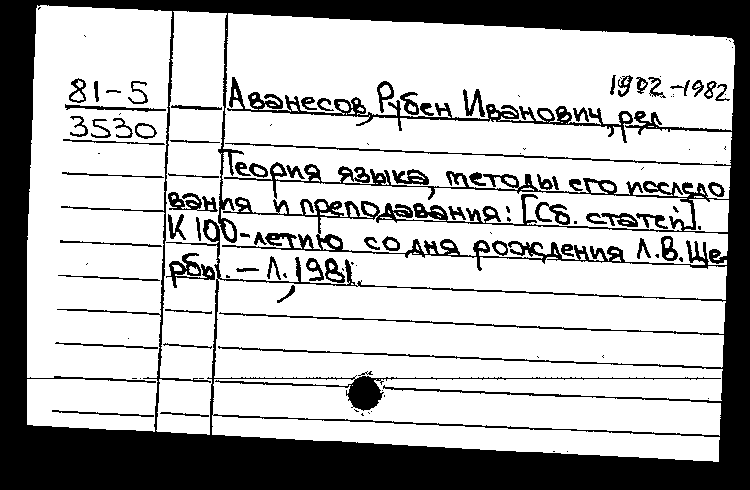 1902-1982
81-5 Аванесов, Рубен Иванович, ред.
3530
Теория языка, методы его исследо
вания и преподавания: [Сб. статей].
К 100-летию со дня рождения Л.В. Ще-
рбы. — Л., 1981.